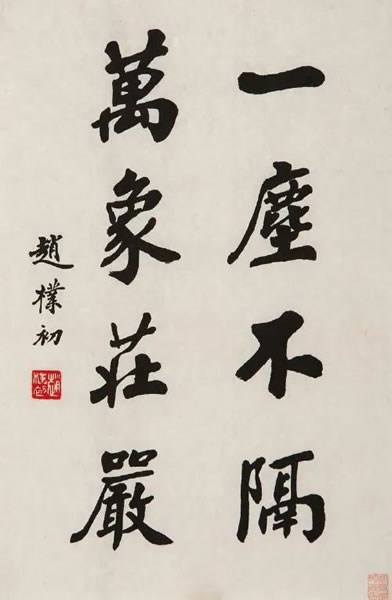 一塵不隔
萬象莊嚴
趙樸初